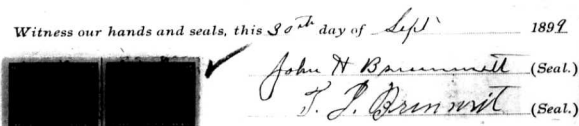 Witness our hands and seals, this 30th day of Sept 1899
John H Brummett (Seal.)
T. J. (Seal.)